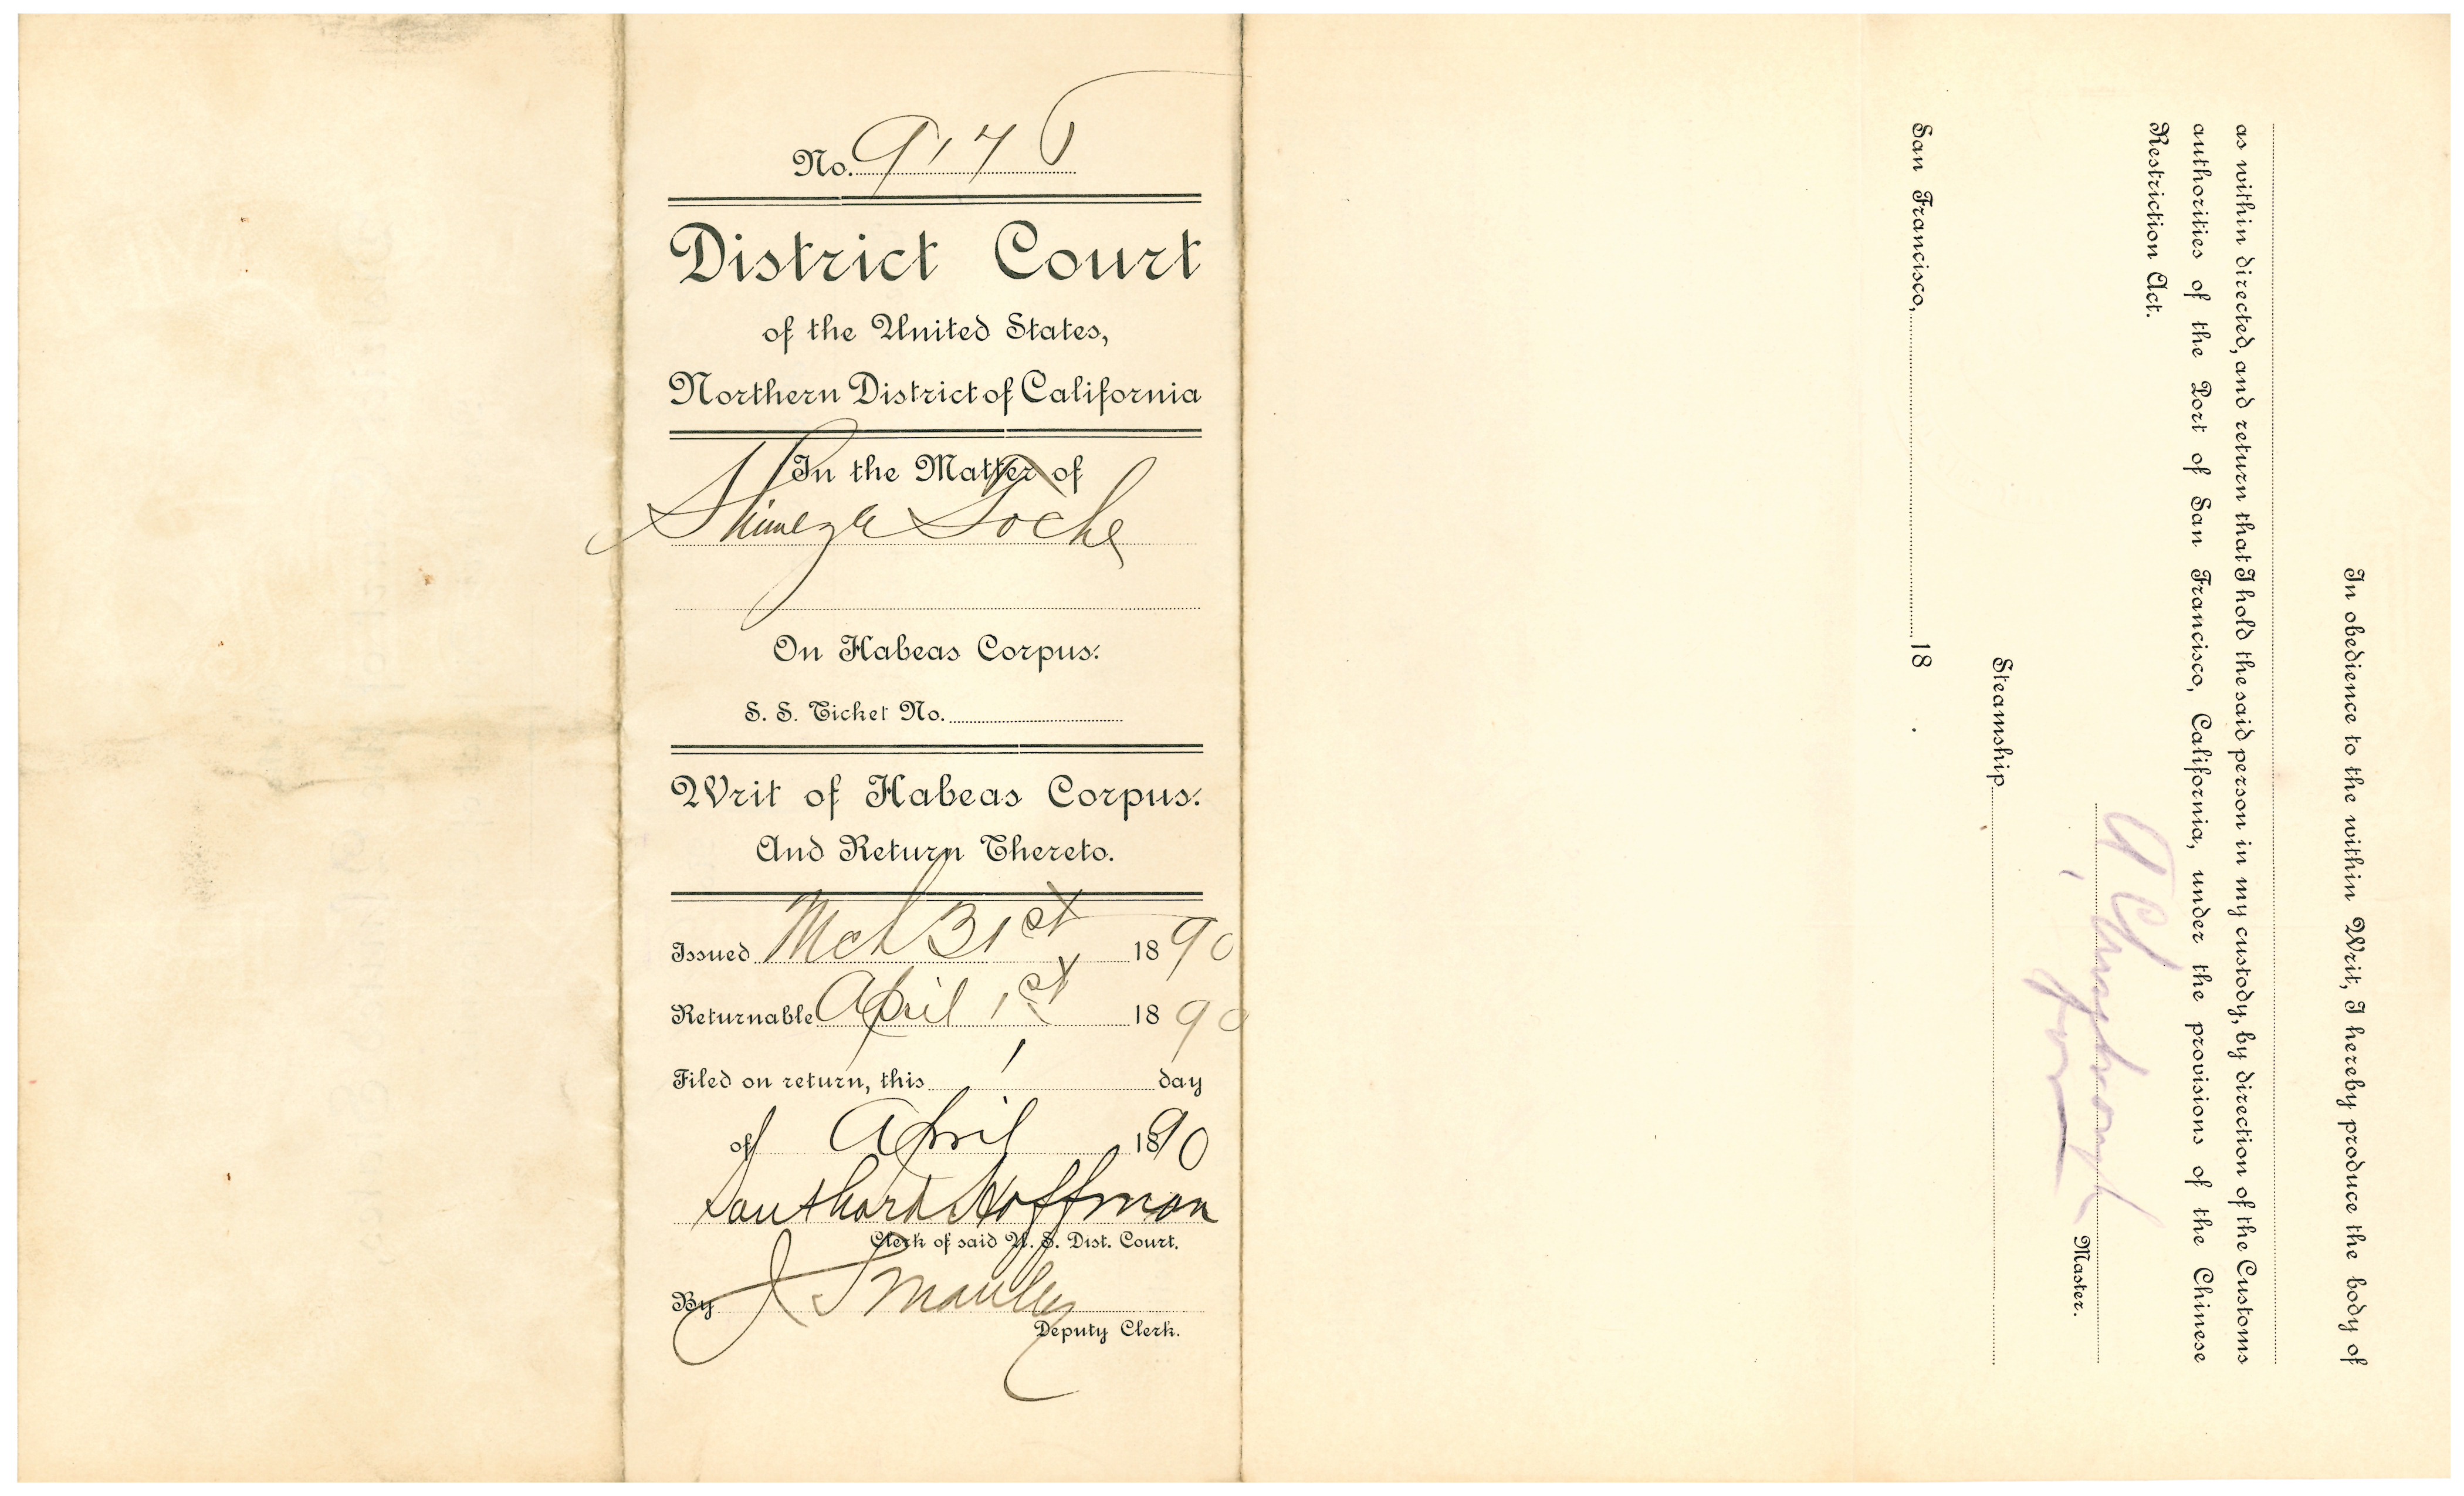 No. 9176
District Court
of the United States,
Northern District of California
In the Matter of
On Habeas Corpus.
S. S. Ticket No.
Writ of Habeas Corpus.
And Return Thereto.
Issued Mch 31st 1890
Returnable April 1st 1890
Filed on return, this 1 day
of April 1890
Southard Hoffman
Clerk of said U. S. Dist. Court.
By J S Manley
Deputy Clerk.
In obedience to the within Writ, I hereby produce the body of
as within directed, and return that I hold the said person in my custody, by direction of the Customs
authorities of the Port of San Francisco, California, under the provisions of the Chinese
Restriction Act.
Master.
Steamship
San Francisco, 18 .